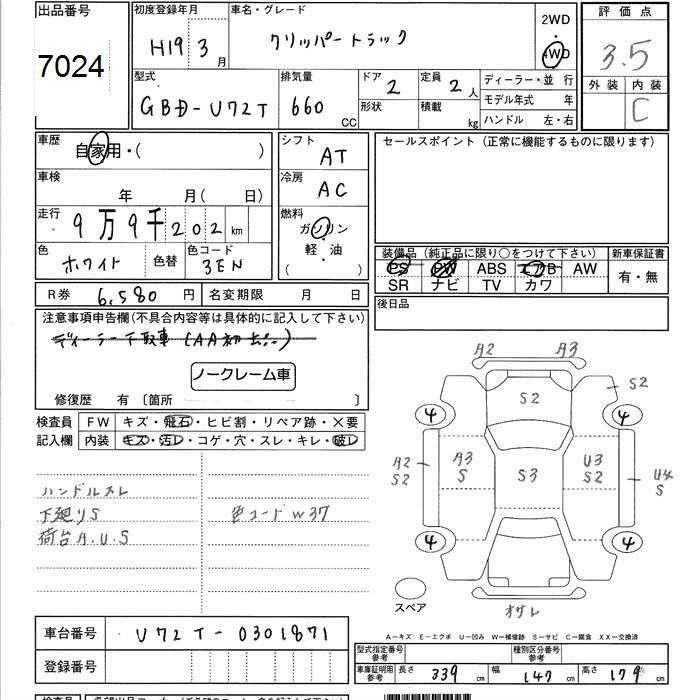 出品番号
7024
初度登録年月
H19 3月
車名・グレード
クリッパートラック
2WD
・
4WD
評価点
3.5
外装 内装
C
型式
GBD-U72T
排気量
660 CC
ドア 2
形状
定員 2人
積載 kg
ディーラー・並行
モデル年式 年
ハンドル 左・右
車歴
自家用・( )
シフト
AT
セールスポイント (正常に機能するものに限ります)
車検
年 月( 日)
冷房
AC
走行 9万9千202km
燃料
ガソリン
・
軽・油
( )
色
ホワイト
色替
色コード
3EN
装備品 (純正品に限り○をつけて下さい)
PS PW ABS エアB AW
SR ナビ TV カワ
新車保証書
有・無
R券 6,580 円
名変期限 月 日
後日品
注意事項申告欄(不具合内容等は具体的に記入して下さい)
ディーラー下取車 (AA初出品)
ノークレーム車
修復歴 有 〔箇所 〕
検査員
記入欄
FW キズ・飛石・ヒビ割・リペア跡・×要
内装 キズ・汚レ・コゲ・穴・スレ・キレ・破レ
ハンドルスレ
下廻りS
色コードW37
荷台A.U.S
A2 A3
S2
S2
4 4
A2
S2
A3
S
S3
U3
S2
U4
S
4 4
スペア
オサレ
A-キズ E-エクボ U-凹み W-補修跡 S-サビ C-腐食 XX-交換済
車台番号 U72T-0301871
登録番号
型式指定番号
参考
種別区分番号
参考
車庫証明用
参考
長さ 339cm
幅 147cm
高さ 179cm